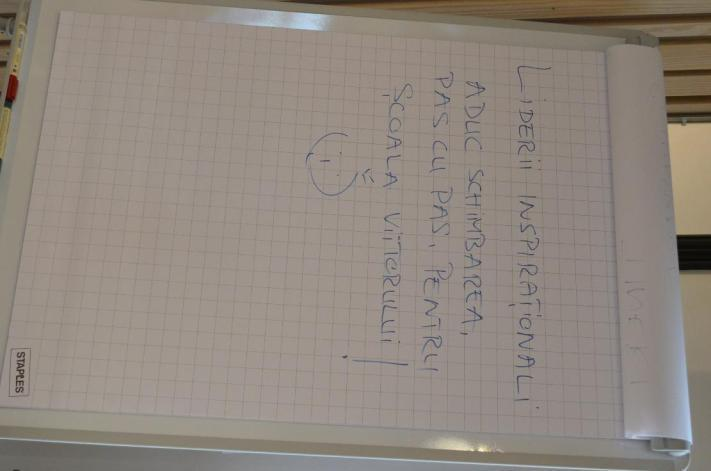 LIDERII INSPIRAȚIONALI
ADUC SCHIMBAREA,
PAS CU PAS, PENTRU
ȘCOALA VIITORULUI!
STAPLES